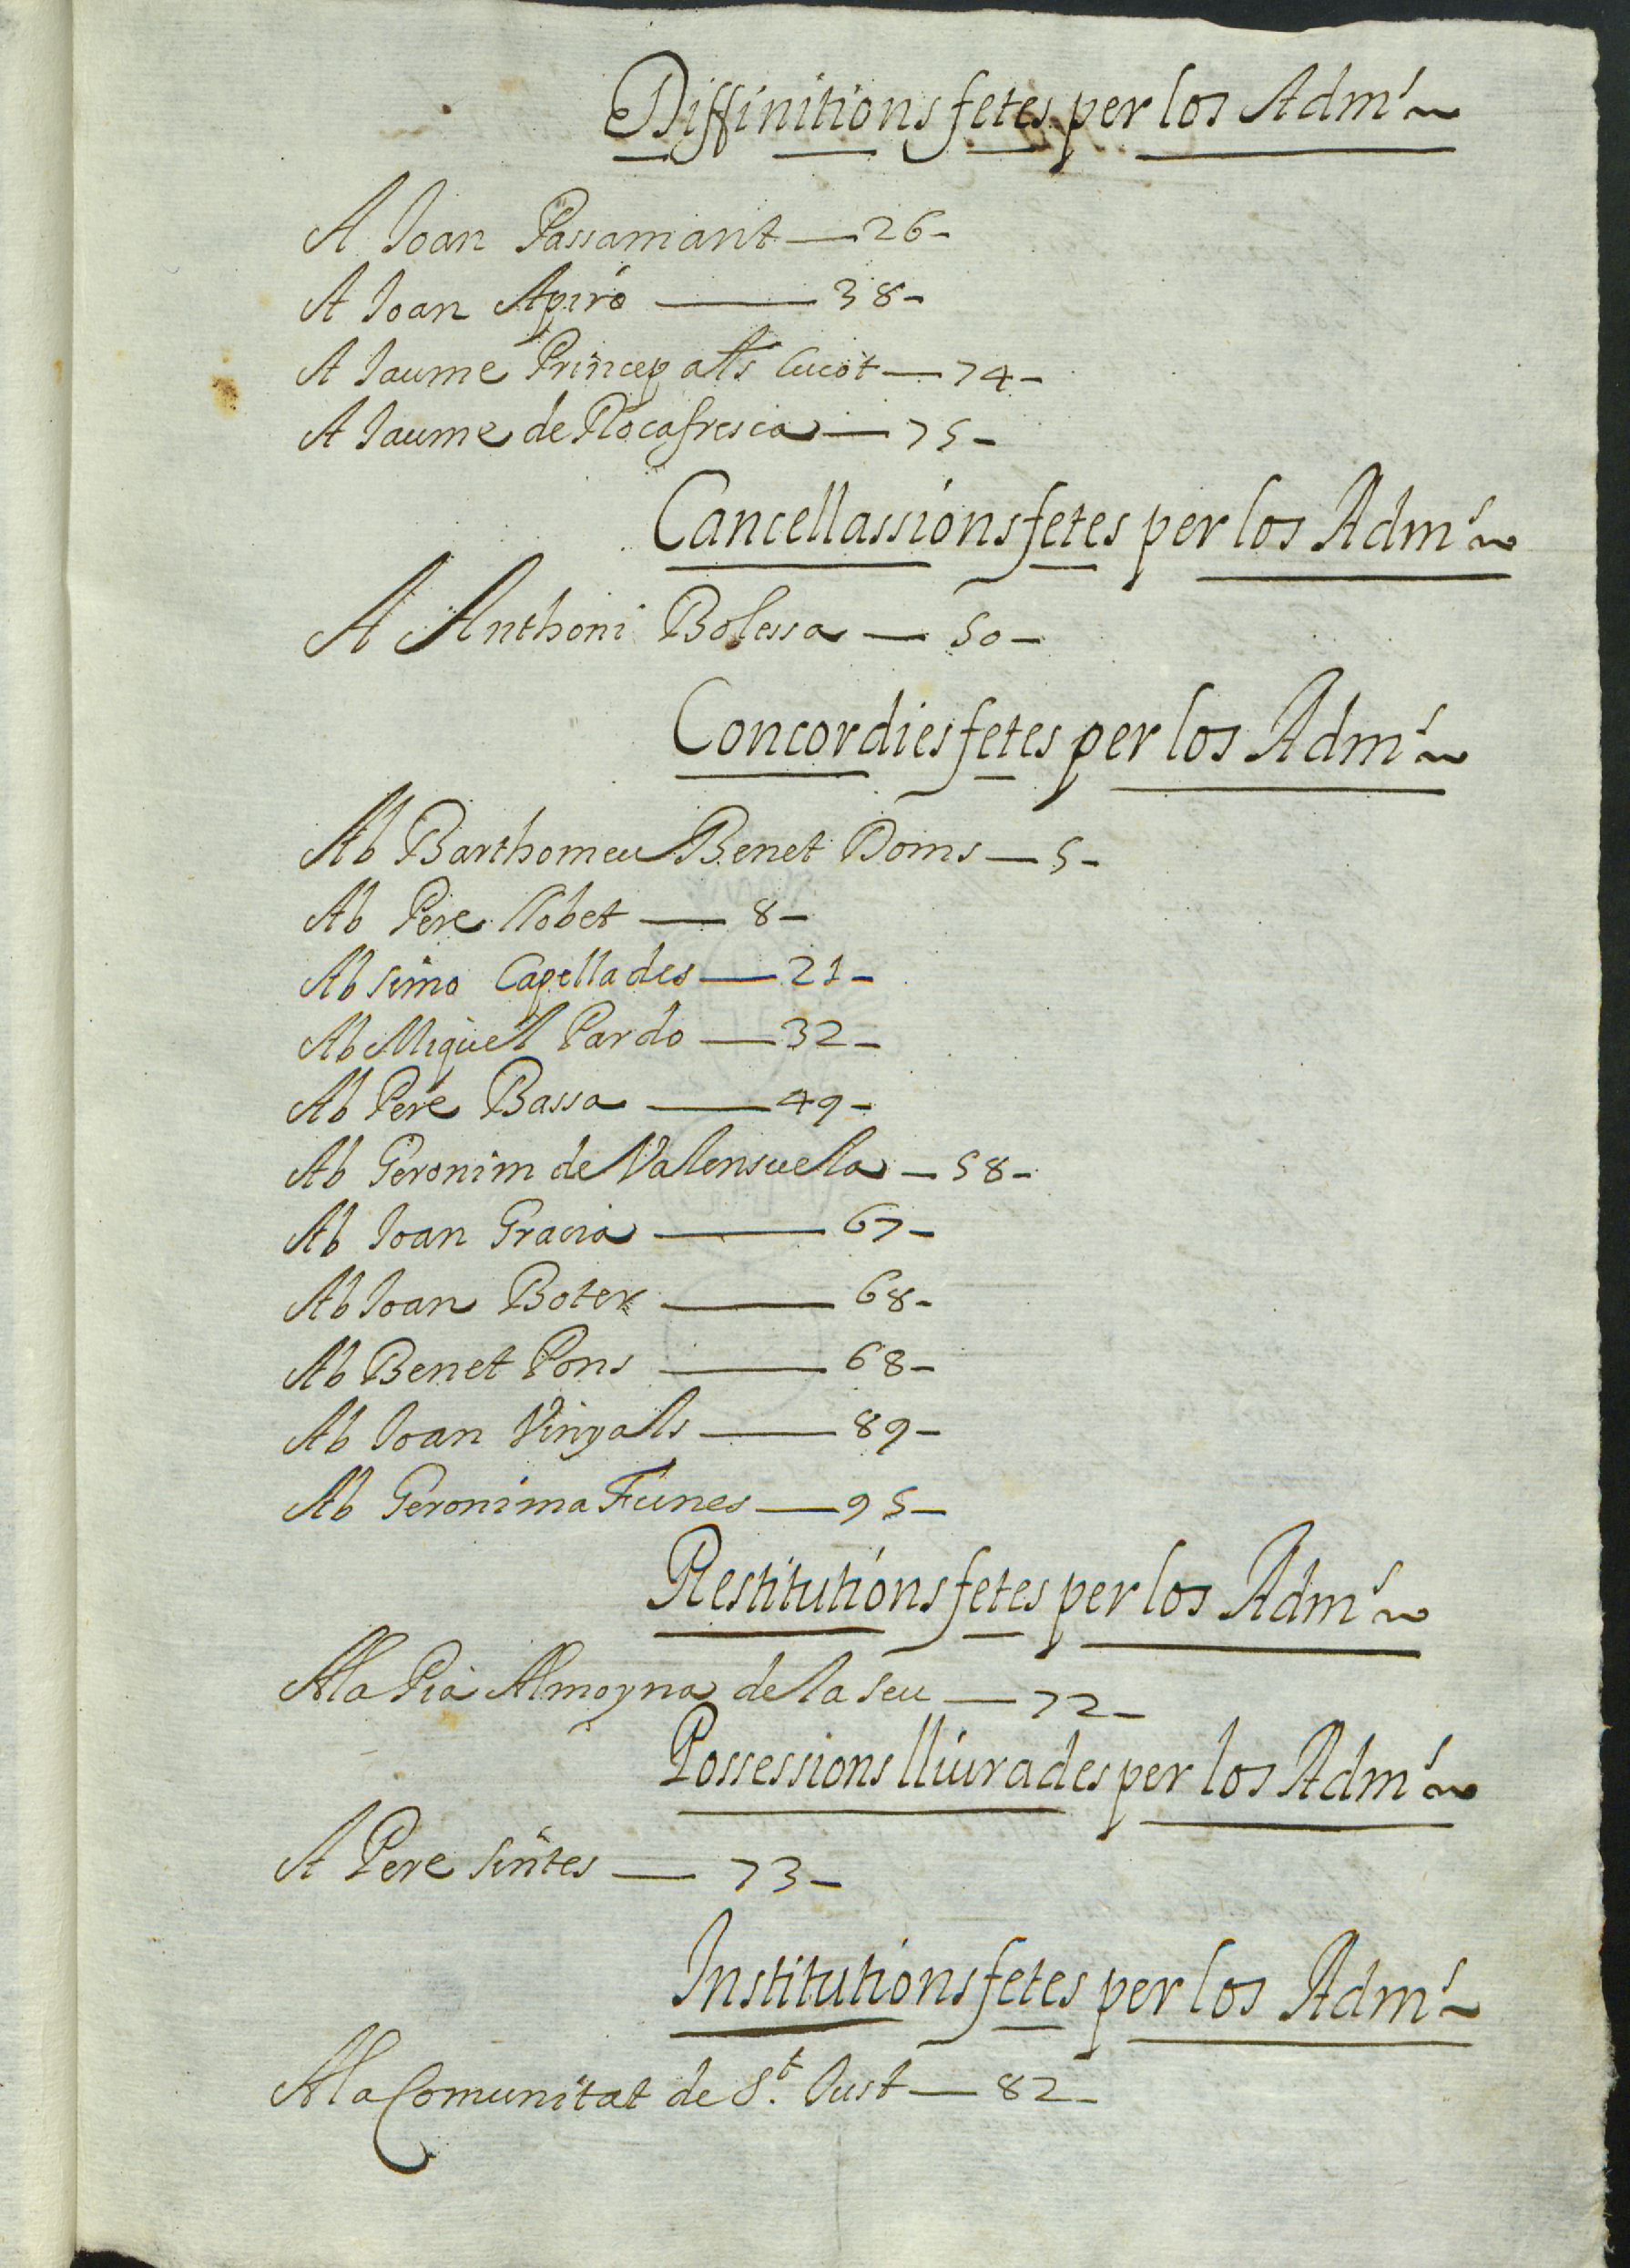 Diffinitions fetes per los Adm.rs
A Joan Passamant — 26 -
A Joan Apiró — 38 -
A Jaume Princep als Cucót — 74 -
A Jaume de Rocafresca — 75 -
Cancellassions fetes per los Adm.rs
A Anthoni Bolessa — 50 -
Concordies fetes per los Adm.rs
Ab Barthomeu Benet Doms — 5 -
Ab Pere llobet — 8 -
Ab simo Capellades — 21 -
Ab Miquel Pardo — 32 -
Ab Pere Bassa — 49 -
Ab Geronim de Valensuela — 58 -
Ab Joan Gracia — 67 -
Ab Joan Boter — 68 -
Ab Benet Pons — 68 -
Ab Joan Vinyals — 89 -
Ab Geronima Funes — 95 -
Restitutions fetes per los Adm.rs
A la Pia Almoyna de la seu — 72 -
Possessions lliurades per los Adm.rs
A Pere sintes — 73 -
Institutions fetes per los Adm.rs
A la Comunitat de St. Just — 82 -